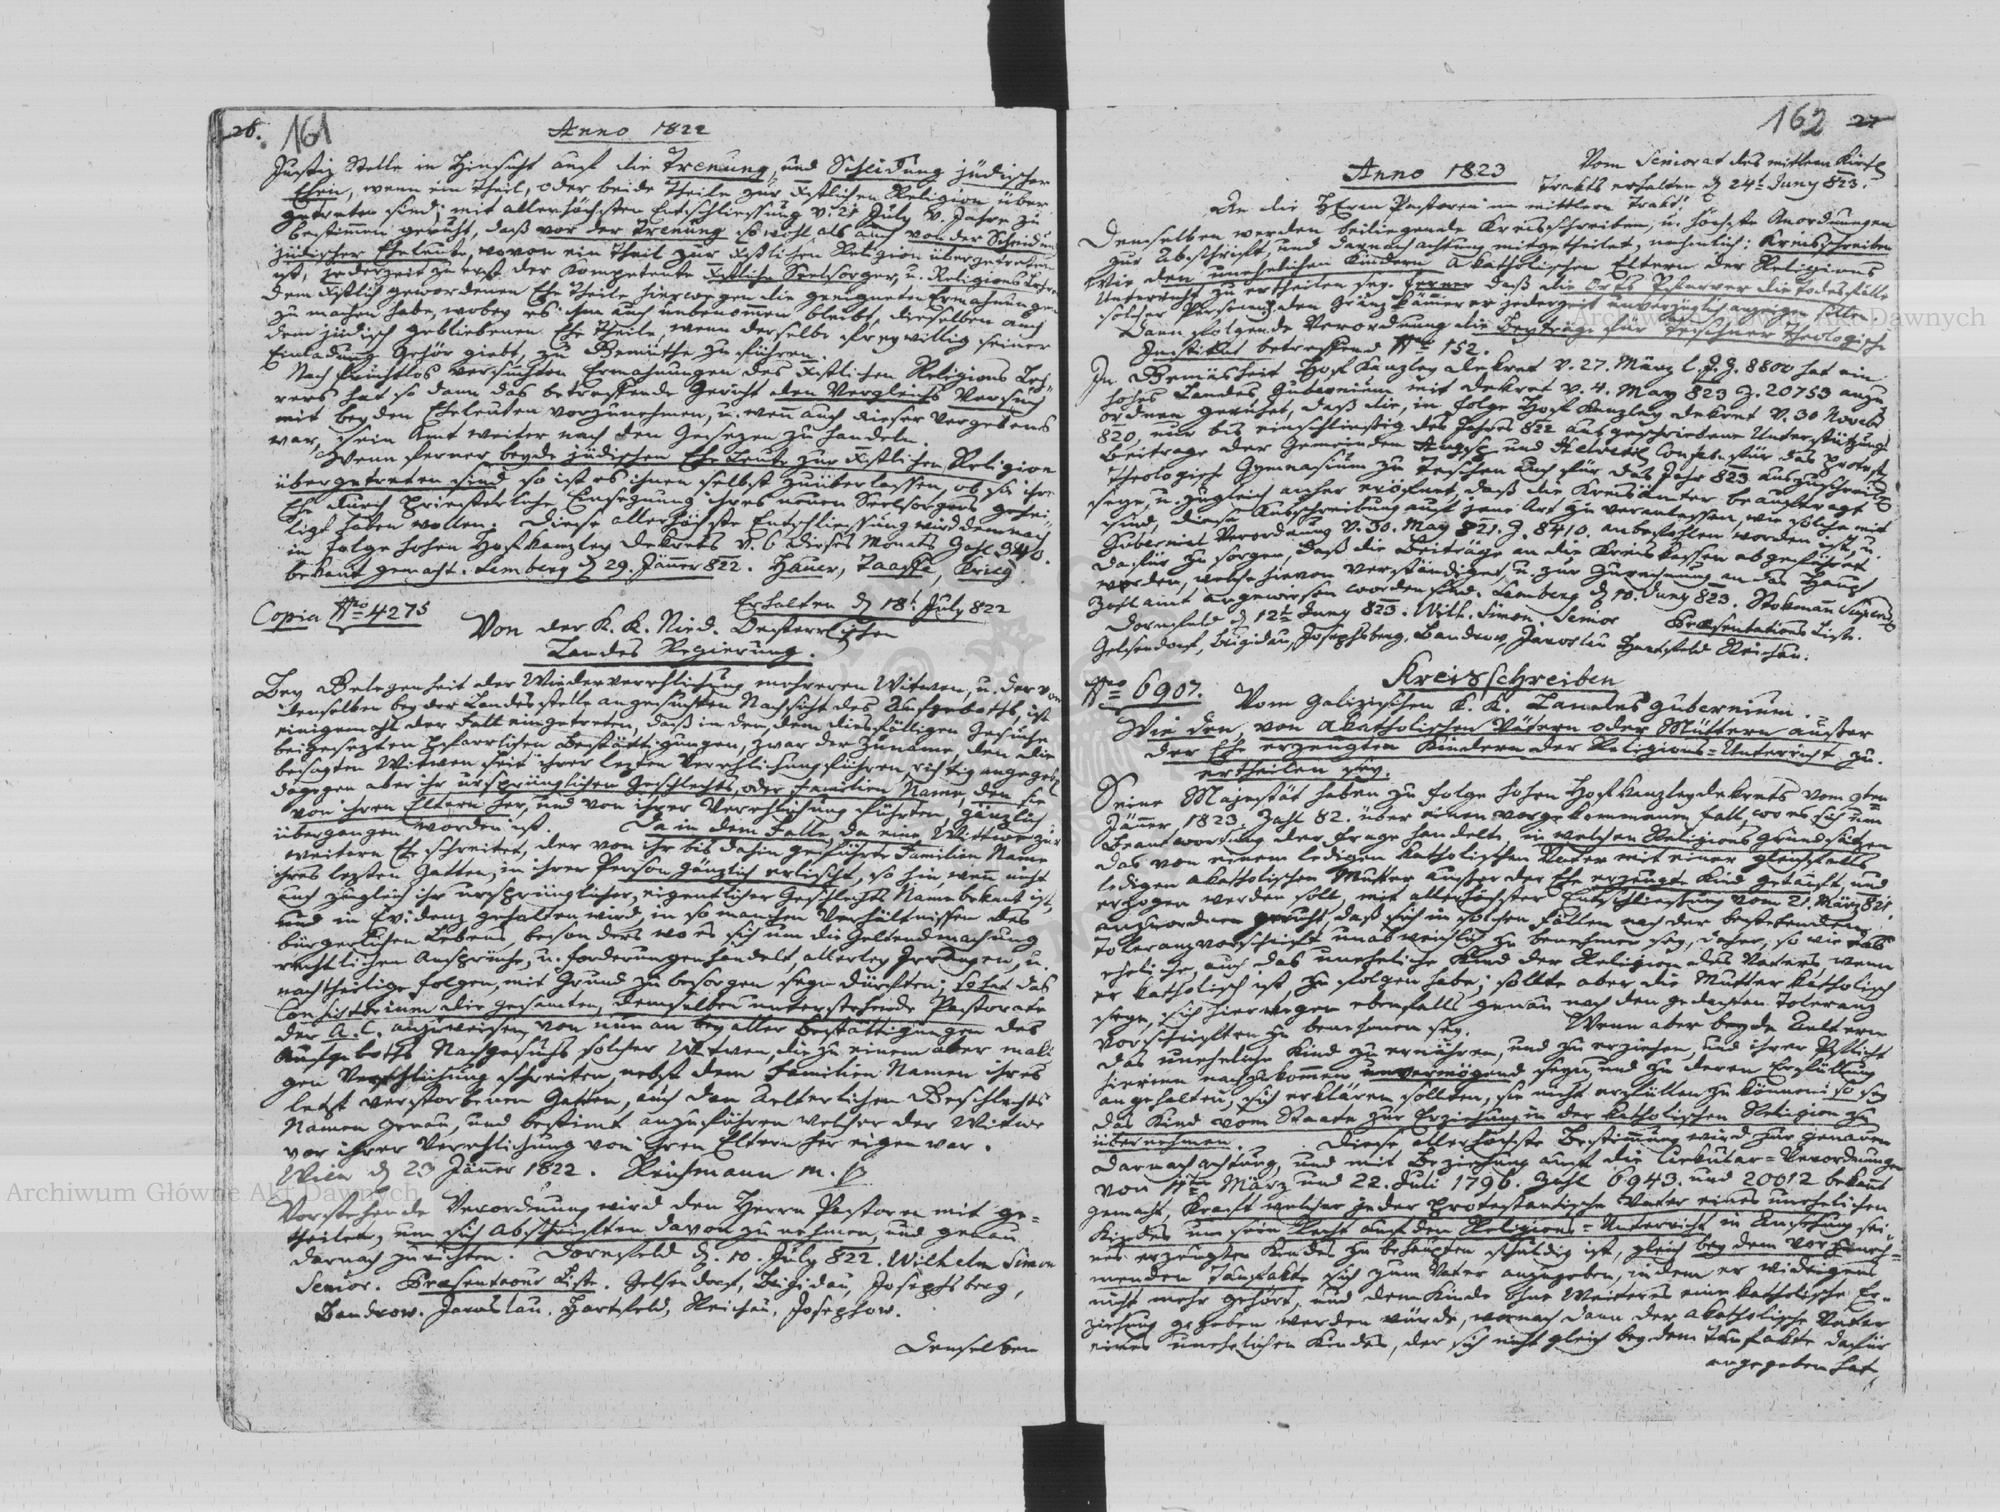 26. 161
Anno 1822
Justiz Stelle in Hinsicht auf die Trenung, und Scheidung jüdischer
Ehen, wenn ein Theil, oder beide Theile zur Kristlichen Religion über
getreten sind; mit allerhöchsten Entschliessung v. 21 July v. Jahrs zu
bestimmen geruht, daß vor der Trenung so wohl als auch von der Scheidung
jüdischer Eheleute, wovon ein Theil zur Kristlichen Religion übergetreten
ist, jederzeit zu erst der Kompetente Kristliche Seelsorger, u. Religions Lehrer
dem Kristlich gewordenen Ehe Theile hierwegen die geeigneten Ermahnungen
zu machen habe, wobey es ihm auch unbenommen bleibt, dieselben auch
dem jüdisch gebliebenen Ehe Theile, wenn derselbe freywillig seiner
Einladung Gehör giebt, zu Gemüthe zu führen.
Nach fruchtlos versuchten Ermahnungen des Kristlichen Religions Leh-
rers hat so dann das betreffende Gericht den Vergleichs Versuch
mit beyden Eheleuten vorzunehmen, u. wenn auch dieser vergebens
war, sein Amt weiter nach den Gesezen zu handeln.
Wenn ferner beyde jüdischen Ehe Leute zur Kristlichen Religion
übergetreten sind so ist es ihnen selbst zu überlassen, ob sie ihre
Ehe durch Priesterliche Einsegnung ihres neuen Seelsorgers gehei-
ligt haben wollen. Diese allerhöchste Entschliessung wird demnach
in Folge hohen Hofkanzley Dekrets v. 6 dieses Monats Zahl 340.
bekant gemacht. Lemberg d 29. Jänner 822. Hauer, Taaffe, Krieg.
Erhalten d 18t July 822
Copia Nro 4275
Von der K. K. Nied. Oesterreichischen
Landes Regierung.
Bey Gelegenheit der Wiederverehlichung mehreren Witwen, u. der von
denselben bey der Landesstelle angesuchten Nachsicht des Aufgeboths, ist
einigemahl der Fall eingetreten, daß in den, dem diesfälligen Gesuche
beigesezten Pfarrlichen Bestättigungen, zwar der Zuname, den die
besagten Witwen seit ihrer lezten Verehlichung führen, richtig angegeben
dagegen aber ihr ursprünglichen Geschlechts, oder Familien Name, den sie
von ihren Eltern her, und von ihrer Verehlichung führten, gänzlich
übergangen worden ist. Da in dem Falle, da eine Witwe zur
weitern Ehe schreitet, der von ihr bis dahin geführte Familien Name
ihres lezten Gatten, in ihrer Person gänzlich erlischt, so hin, wenn nicht
auch zugleich ihr ursprünglicher, eigentlicher Geschlechts Name bekant ist,
und in Evidenz gehalten wird, in so manchen Verhältnissen des
bürgerlichen Lebens, besonders wo es sich um die Geltendmachung
rechtlichen Ansprüche, u. Forderungen handelt, allerley Irrungen, u.
nachtheilige Folgen, mit Grund zu besorgen seyn dürften; so hat das
Consistorium die gesamten, demselben unterstehende Pastorate
der A. C. anzuweisen, von nun an bey aller Bestättigungen des
Aufgeboths Nachgesuchs solcher Witwen, die zu einem aber mali
gen Verehlichung schreiten, nebst dem Familien Namen ihres
letzt verstorbenen Gatten, auch den Aelterlichen Geschlechts
Namen genau, und bestimt anzuführen welcher der Witwe
vor ihrer Verehlichung von ihren Eltern her eigen war.
Wien d 23 Jänner 1822. Reichmann m. p
Vorstehende Verordnung wird den Herrn Pastorn mit ge-
theilet, um sich Abschriften davon zu nehmen, und genau
darnach zu richten. Dornfeld d. 10. July 822. Wilhelm Simon
Senior. Praesentations Liste. Gelsendorf, Brigidau, Josephsberg,
Bandrow. Jaroslau. Hartfeld, Reichau, Josephow.
Denselben
162 27
Anno 1823
Vom Seniorat des mittlern Kirch
Trakts erhalten d 24t Juny 823.
An die HErrn Pastoren im mittlern Trakt!
Denselben werden beiliegende Kreisschreiben, u. höchste Anordnungen
zur Abschrift, und darnachachtung mitgetheilet, nehmlich: Kreisschreiben
Wie den unehelichen Kindern Akatholischen Eltern der Religions
Unterricht zu ertheilen sey. Ferner daß die Orts Pfarrer die Todesfälle
solcher Personen den Gränz Kämmerer jederzeit unverzüglich anzeigen sollen
Dann folgende Verordnung die Beyträge für Teschner Theologische
Institut betreffend Nro 152.
In Gemäsheit Hof Kanzley Dekret v. 27. März l. J. Z. 8800 hat ein
hohes Landes Gubernium mit Dekret v. 4. May 823 Z. 20753 anzu
ordnen geruhet, daß die, in Folge Hof Kanzley Dekret v. 30 Novebr
820, nur bis einschließig des Jahres 822 ausgeschriebene Unterstützungs
Beitrage der Gemeinden Augsb. und Helvetl. Confess. für das protest.
Theologische Gymnasium zu Teschen auch für das Jahr 823 auszuschreiben
seye, u. zugleich anher eröfnet, daß die Kreisämter beauftragt
sind, diese Ausschreibung auf jene Art zu veranlassen, wie solche mit
Gubernial Verordnung v. 30. May 821. Z. 8410. anbefohlen worden ist, u.
dafür zu sorgen, daß die Beiträge an die Kreis Kassen abgeführt
werden, welche hievon verständiget, u. zur Zureichnung an das Haupt
Zahlamt angewiesen worden sind. Lemberg d 10. Juny 823. Stokmann Superint.
Dornfeld d 12t Juny 823. Wilh. Simon. Senior Praesentations Liste.
Gelsendorf, Brigidau, Josephsberg, Bandrow, Jaroslau Hartfeld Reichau.
Kreisschreiben
Nro 6907. Vom Galizischen K. K. Landesgubernium.
Wie den, von Akatholischen Vätern oder Müttern ausser
der Ehe erzeugten Kindern der Religions-Unterricht zu
ertheilen sey.
Seine Majestät haben zu Folge hohen Hofkanzleydekrets vom 9ten
Jänner 1823. Zahl 82. über einen vorgekommenen Fall, wo es sich um
Beantwortung der Frage handelte, in welchen Religionsgrundsätzen
das von einem ledigen katholischen Vater mit einer gleichfalls
ledigen akatholischen Mutter ausser der Ehe erzeugte Kind getauft, und
erzogen werden soll, mit allerhöchster Entschliessung vom 21. März 821.
anzuordnen geruht, daß sich in solchen Fällen nach der bestehenden
Toleranzvorschrift unabweichlich zu benehmen sey, daher, so wie das
eheliche, auch das uneheliche Kind der Religion des Vaters, wenn
er katholisch ist, zu folgen habe; sollte aber die Mutter katholisch
seyn, sich hierwegen ebenfalls genau nach den gedachten Toleranz
Vorschriften zu benehmen sey. Wenn aber beyde Aeltern
das uneheliche Kind zu ernähren, und zu erziehen, und ihrer Pflicht
hierinn nachzukommen unvermögend seyn, und zu deren Erfüllung
angehalten, sich erklären sollten, sie nicht erfüllen zu können: so sey
das Kind vom Staate zur Erziehung in der katholischen Religion zu
übernehmen. Diese allerhöchste Bestimmung wird zur genauen
Darnachachtung, und mit Beziehung auf die Cirkular-Verordnungen
von 11ten März und 22. Juli 1796. Zahl 6943. und 20012 bekannt
gemacht, Kraft welcher jeder protestantische Vater eines unehelichen
Kindes um sein Recht auf den Religions-Unterricht in Ansehung sei-
nes erzeugten Kindes zu behaupten schuldig ist, gleich bey dem vorzuneh-
menden Taufakte sich zum Vater anzugeben, indem er widrigens
nicht mehr gehört, und dem Kinde ohne Weiteres eine katholische Er-
ziehung gegeben werden würde, wornach dann der akatholische Vater
eines unehelichen Kindes, der sich nicht gleich bey dem Taufakte dafür
angegeben hat,
Archiwum Główne Akt Dawnych
Archiwum Główne Akt Dawnych